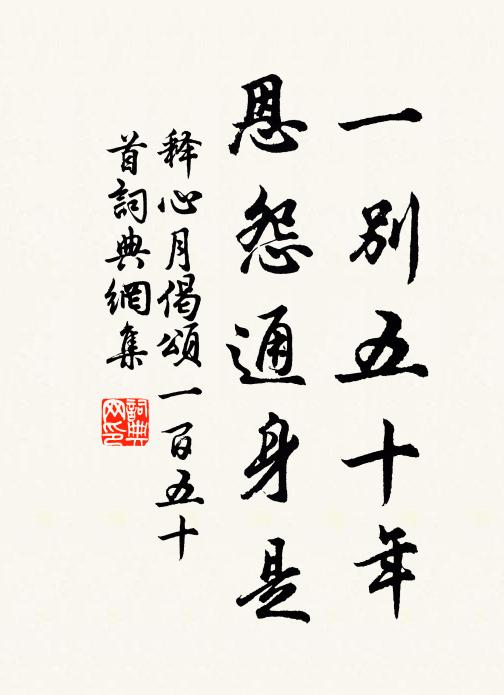 一別五十年
恩怨通身是
释心月偈頌一百五十
首詞典網集
詞典
网印